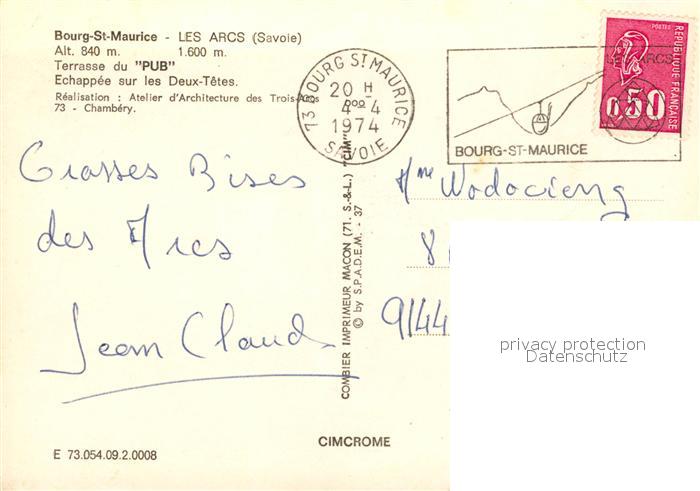 Bourg-St-Maurice - LES ARCS (Savoie)
Alt. 840 m. 1.600 m.
Terrasse du "PUB"
Echappée sur les Deux-Têtes.
Réalisation : Atelier d'Architecture des Trois-Arcs
73 - Chambéry.
73 BOURG ST MAURICE
20 H
4-4
1974
SAVOIE
LES ARCS
BOURG-ST-MAURICE
POSTES
REPUBLIQUE FRANÇAISE
0,50
Grosses Bises
des Arcs
Jean Claude
COMBIER IMPRIMEUR MACON (71. S.-&-L.) "CIM"
© by S.P.A.D.E.M. - 37
Mme
8
9144
privacy protection
Datenschutz
CIMCROME
E 73.054.09.2.0008